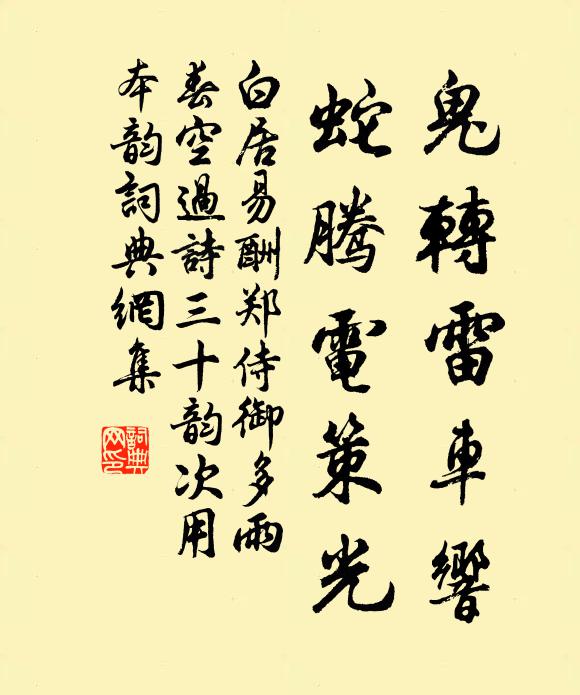 鬼轉雷車響
蛇騰電策光
白居易酬郑侍御多雨
春空過詩三十韵次用
本韵詞典網集
詞典
网印